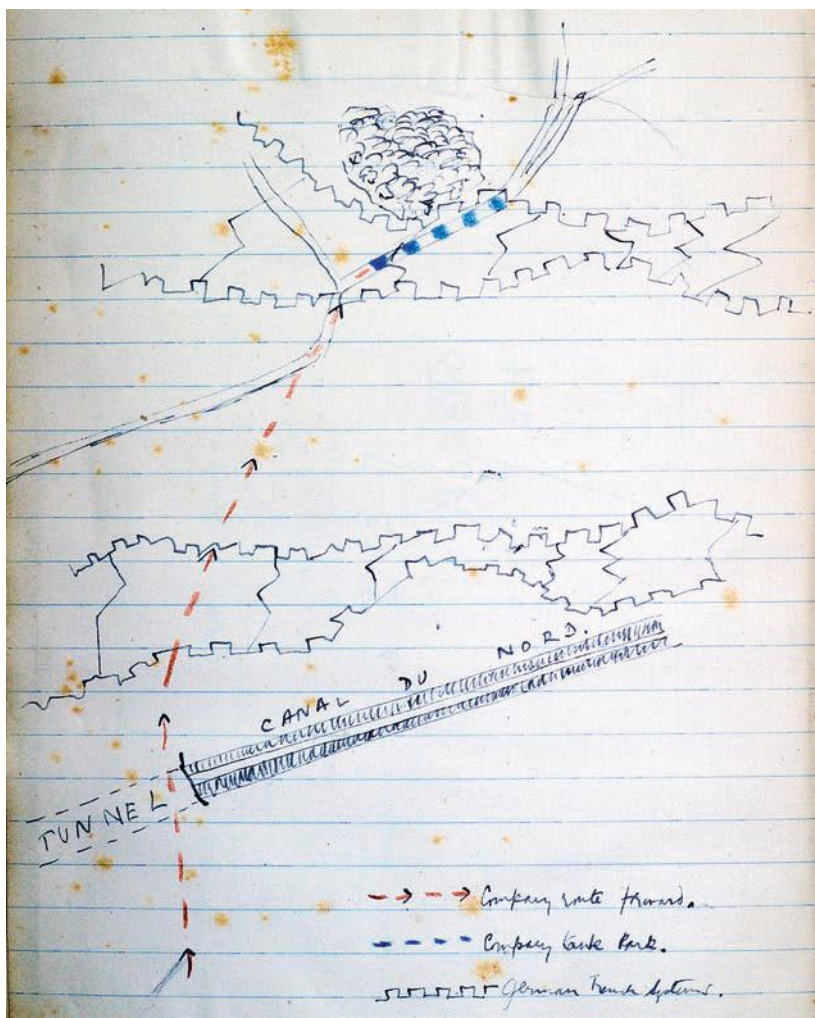 CANAL DU NORD.
TUNNEL
Company route forward.
Company tank Park.
German Trench Systems.